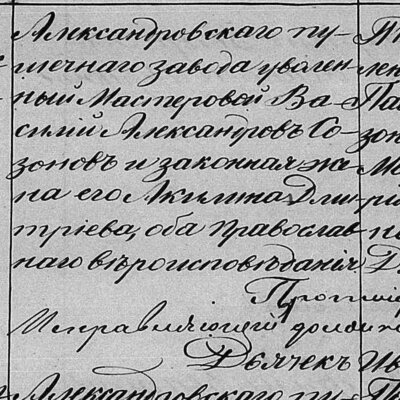 Александровскаго пу-
шечнаго завода уволен-
ный Мастеровой Ва-
силій Александровъ Со-
зоновъ и законная же-
на его Акилина Дми-
тріева, оба Православ-
наго вѣроисповѣданія
Исправляющій должно
Дьячекъ Ив
Александровскаго пу-